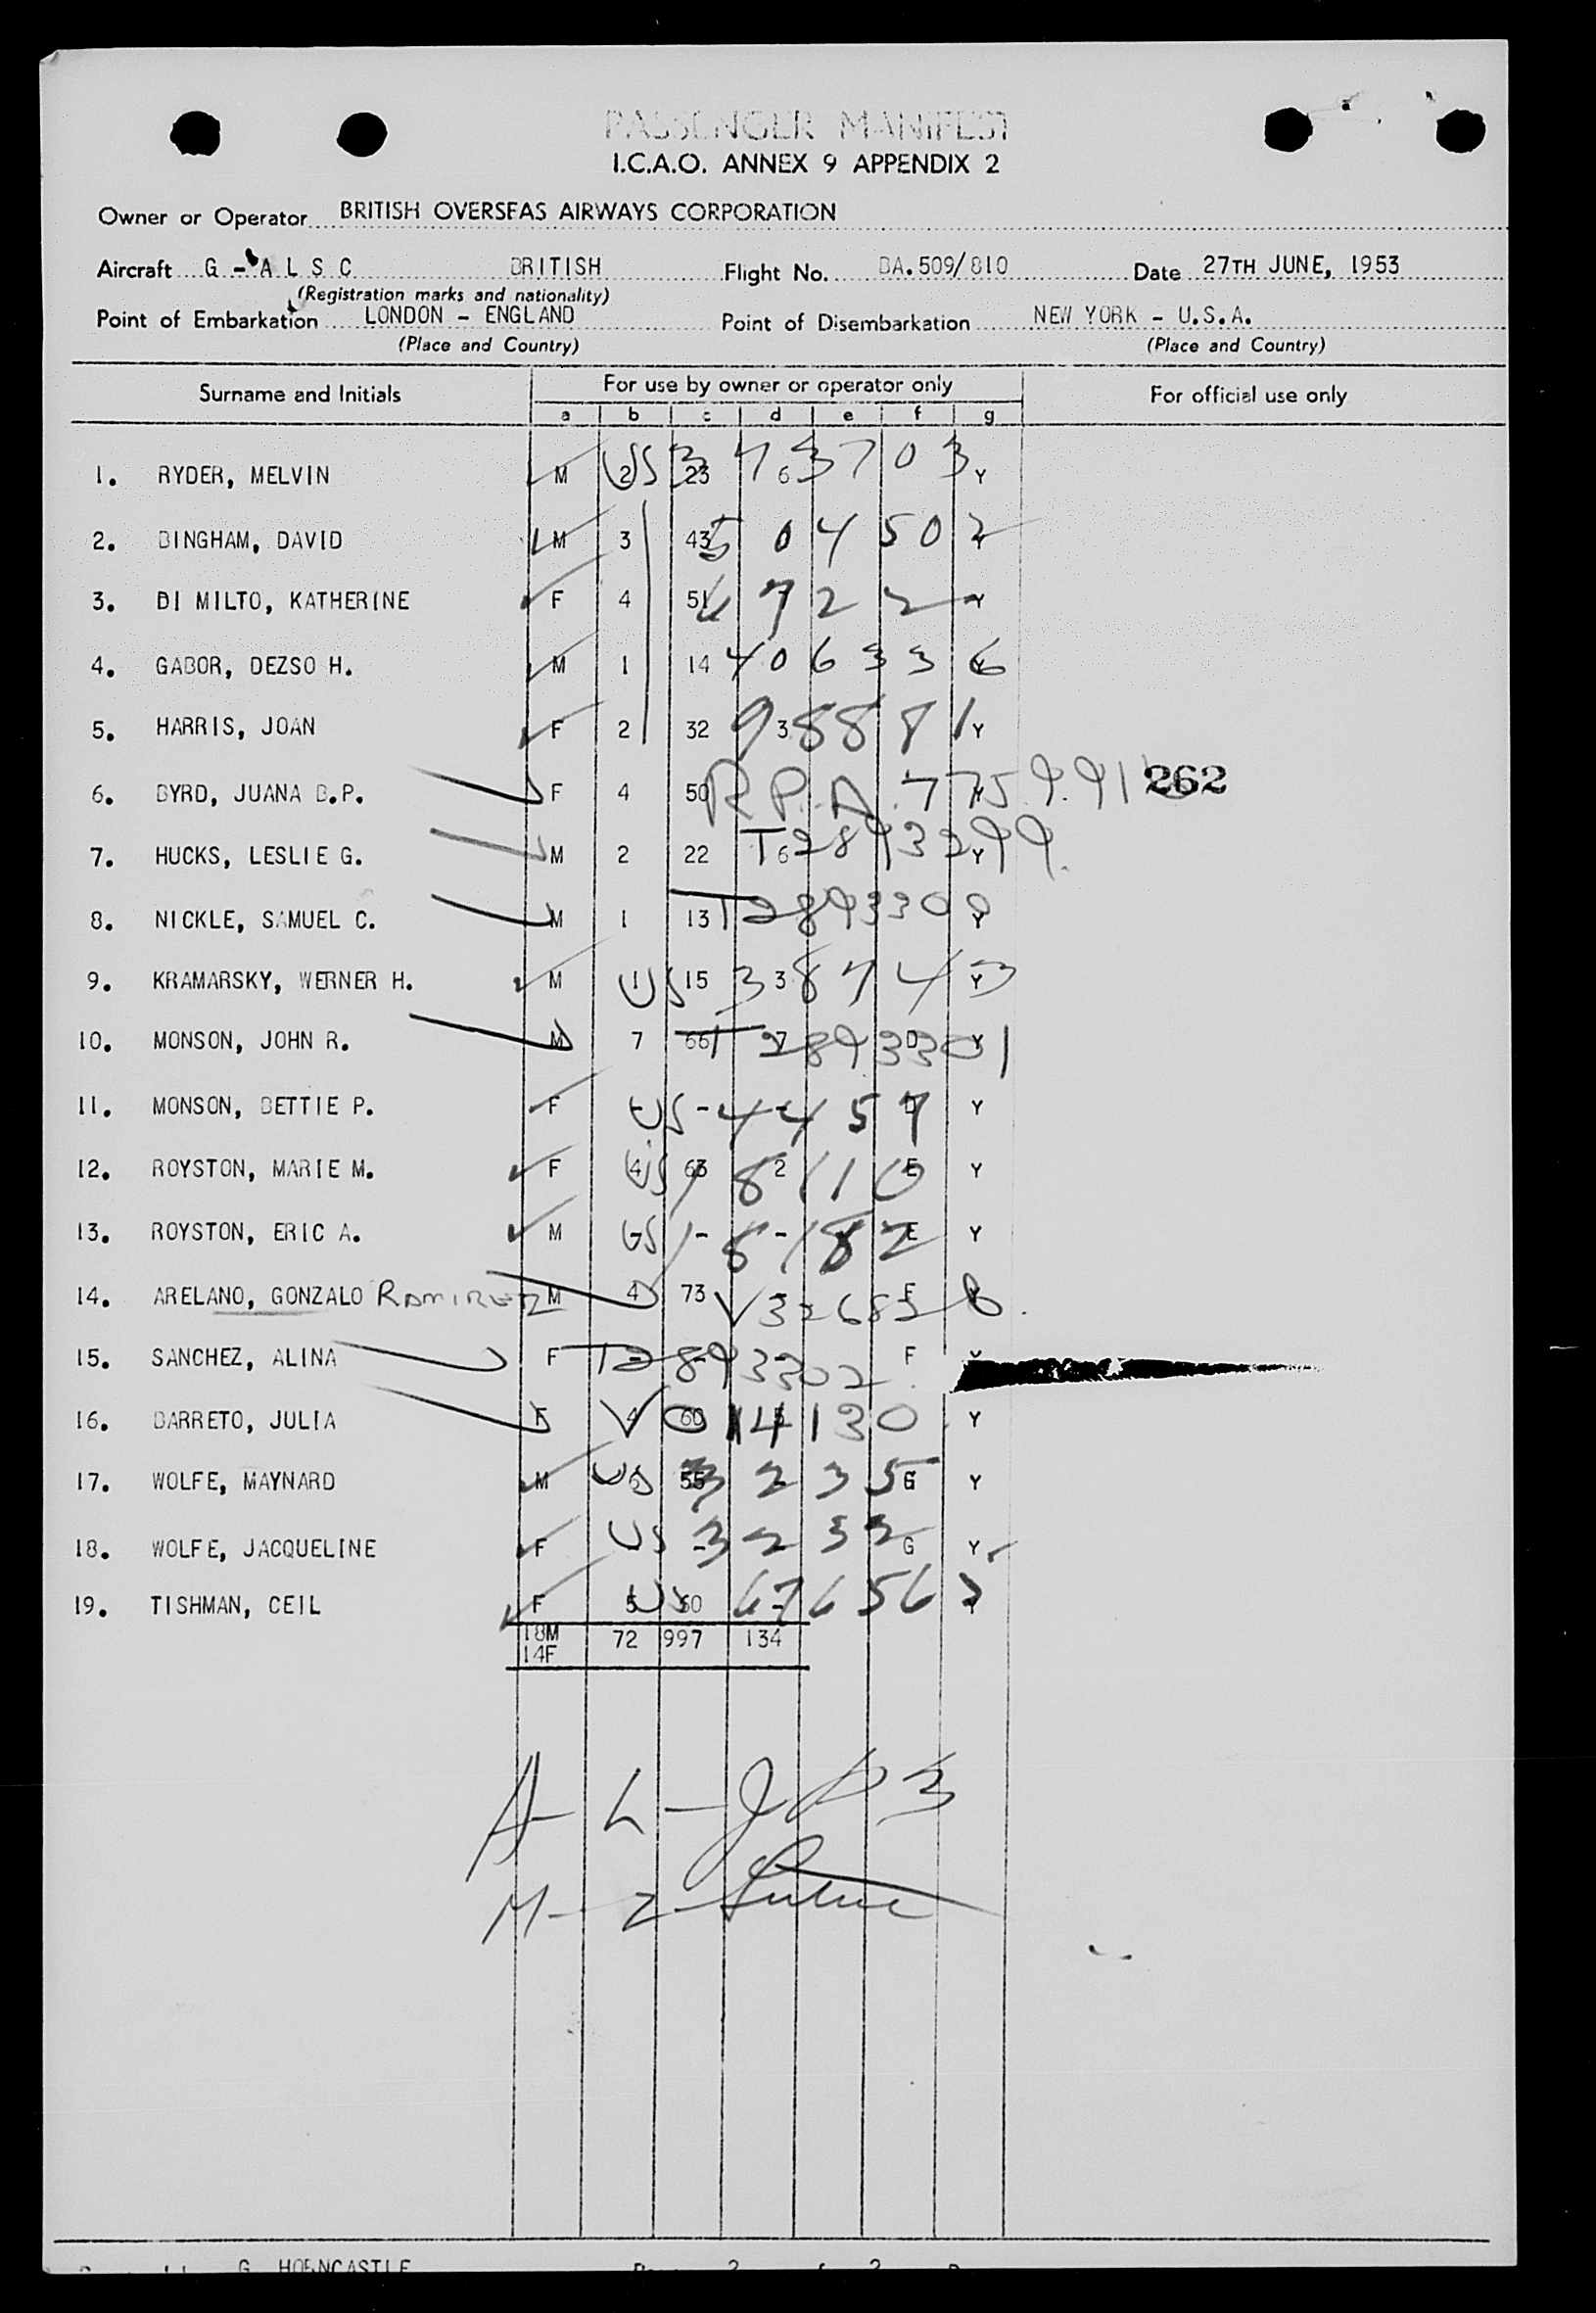 PASSENGER MANIFEST
I.C.A.O. ANNEX 9 APPENDIX 2
Owner or Operator BRITISH OVERSEAS AIRWAYS CORPORATION
Aircraft G - A L S C BRITISH Flight No. BA.509/810 Date 27TH JUNE, 1953
(Registration marks and nationality)
Point of Embarkation LONDON - ENGLAND Point of Disembarkation NEW YORK - U.S.A.
(Place and Country) (Place and Country)
Surname and Initials For use by owner or operator only For official use only
a b c d e f g
1. RYDER, MELVIN M 2 23 6 Y US 3763703
2. BINGHAM, DAVID M 3 43 Y 504502
3. DI MILTO, KATHERINE F 4 51 Y
4. GABOR, DEZSO H. M 1 14 406336
5. HARRIS, JOAN F 2 32 3 Y 98881
6. BYRD, JUANA B.P. F 4 50 Y R.P.A. 262
7. HUCKS, LESLIE G. M 2 22 6 Y T2893299
8. NICKLE, SAMUEL C. M 1 13 Y T2893300
9. KRAMARSKY, WERNER H. M 1 15 3 Y US 387443
10. MONSON, JOHN R. M 7 66 7 D Y T2893301
11. MONSON, BETTIE P. F - - - D Y US 4457
12. ROYSTON, MARIE M. F 4 63 2 E Y US
13. ROYSTON, ERIC A. M - - - E Y
14. ARELANO, GONZALO RAMIREZ M 4 73 - F Y
15. SANCHEZ, ALINA F - - - F Y T2893302
16. BARRETO, JULIA F 4 60 5 Y V 014130
17. WOLFE, MAYNARD M 6 55 - G Y US 3235
18. WOLFE, JACQUELINE F - - - G Y US 3232
19. TISHMAN, CEIL F 5 50 - Y US
18M 72 997 134
14F
A - L -
M - Z -
G. HORNCASTLE